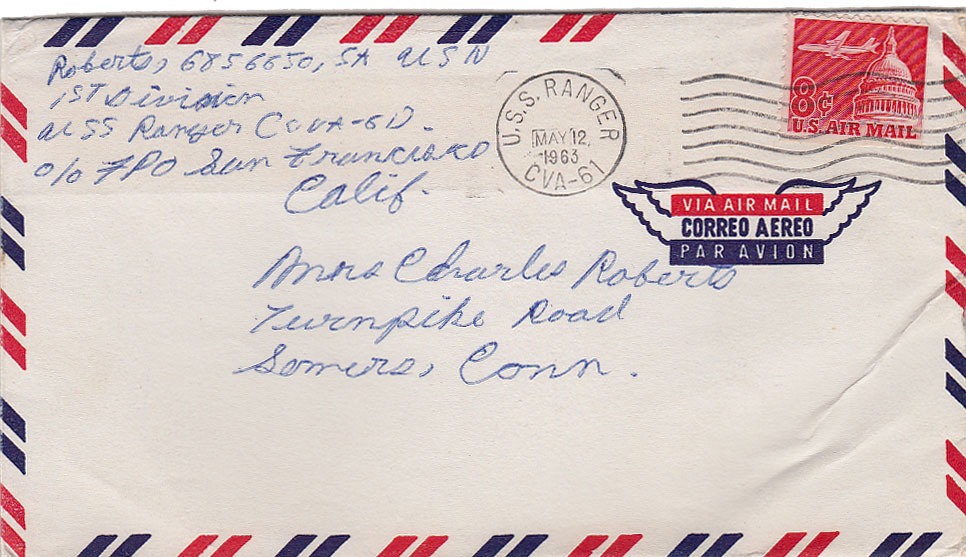 Roberts, 6856650, SA USN
1ST Division
USS Ranger CVA-61.
c/o FPO San Francisco
Calif.
U.S.S. RANGER
MAY 12,
1963
CVA-61
8¢
U.S. AIR MAIL
VIA AIR MAIL
CORREO AEREO
PAR AVION
Mrs Charles Roberts
Turnpike Road
Somers, Conn.